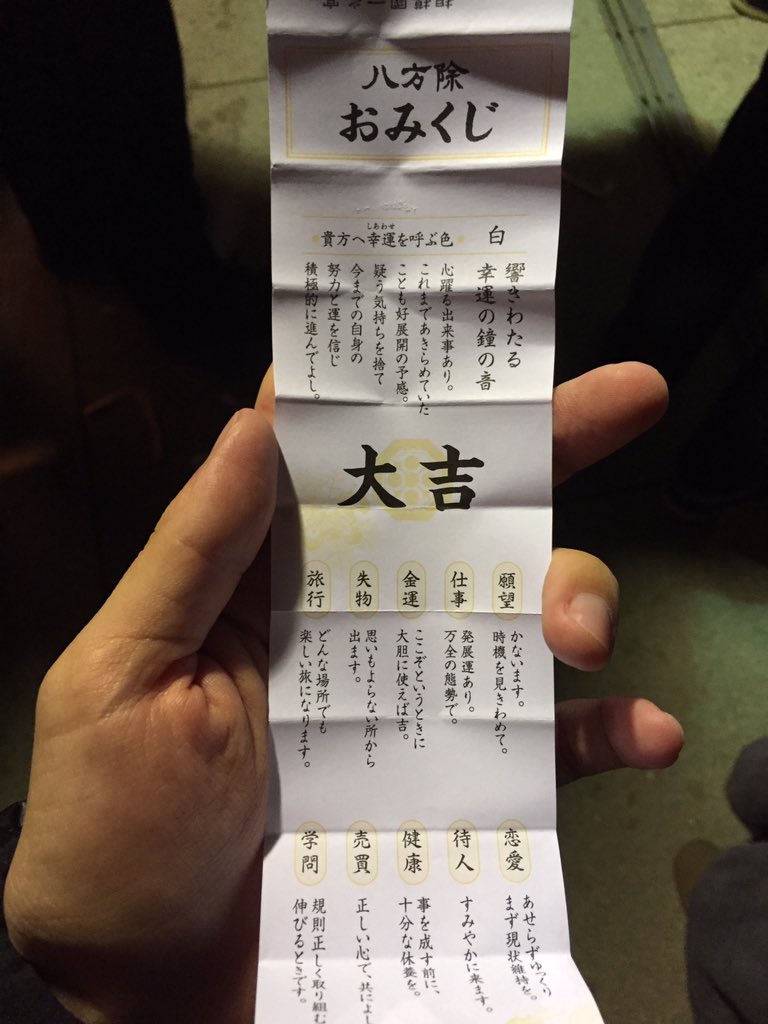 相模國一之宮
八方除
おみくじ
貴方へ幸運を呼ぶ色
しあわせ
白
響きわたる
幸運の鐘の音
心躍る出来事あり。
これまであきらめていた
ことも好展開の予感。
疑う気持ちを捨て
今までの自身の
努力と運を信じ
積極的に進んでよし。
大吉
願望
かないます。
時機を見きわめて。
仕事
発展運あり。
万全の態勢で。
金運
ここぞというときに
大胆に使えば吉。
失物
思いもよらない所から
出ます。
旅行
どんな場所でも
楽しい旅になります。
恋愛
あせらずゆっくり
まず現状維持を。
待人
すみやかに来ます。
健康
事を成す前に、
十分な休養を。
売買
正しい心で、共によし
学問
規則正しく取り組む
伸びるときです。